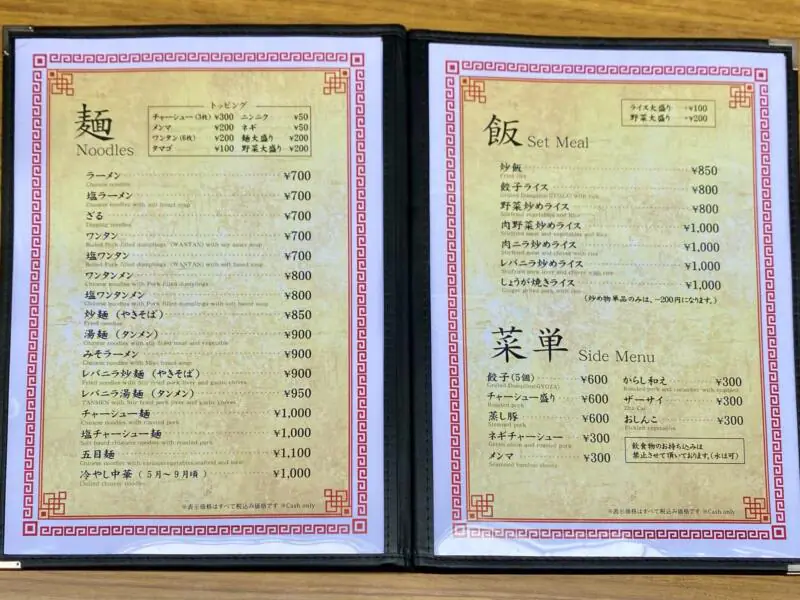 麺
Noodles
トッピング
チャーシュー(3枚) ¥300 ニンニク ¥50
メンマ ¥200 ネギ ¥50
ワンタン(6枚) ¥200 麺大盛り ¥200
タマゴ ¥100 野菜大盛り ¥200
ラーメン ¥700
Chinese noodles
塩ラーメン ¥700
Chinese noodles with salt based soup
ざる ¥700
Dipping noodles
ワンタン ¥700
Boiled Pork filled dumplings (WANTAN) with soy sauce soup
塩ワンタン ¥700
Boiled Pork filled dumplings (WANTAN) with salt based soup
ワンタンメン ¥800
Chinese noodles with Pork filled dumplings
塩ワンタンメン ¥800
Chinese noodles with Pork filled dumplings with salt based soup
炒麺(やきそば) ¥850
Fried noodles
湯麺(タンメン) ¥900
Chinese noodles with stir fried meat and vegetable
みそラーメン ¥900
Chinese noodles with Miso based soup
レバニラ炒麺(やきそば) ¥900
Fried noodles with Stir fried pork liver and garlic chives
レバニラ湯麺(タンメン) ¥950
TANMEN with Stir fried pork liver and garlic chives
チャーシュー麺 ¥1,000
Chinese noodles with roasted pork
塩チャーシュー麺 ¥1,000
Salt based chinese noodles with roasted pork
五目麺 ¥1,100
Chinese noodles with
冷やし中華(5月〜9月頃) ¥1,000
Chilled chinese noodles
※表示価格はすべて税込み価格です ※Cash only
飯
Set Meal
ライス大盛り +¥100
野菜大盛り +¥200
炒飯 ¥850
Fried rice
餃子ライス ¥800
Grilled Dumpling(GYOZA) with rice
野菜炒めライス ¥800
Stirfried vegetables and Rice
肉野菜炒めライス ¥1,000
Stirfried meat and vegetables and Rice
肉ニラ炒めライス ¥1,000
Stirfried meat and chives with rice
レバニラ炒めライス ¥1,000
Stirfried pork liver and chives with rice
しょうが焼きライス ¥1,000
Ginger grilled pork with rice
(炒め物単品のみは、−200円になります。)
菜単
Side Menu
餃子(5個) ¥600
Grilled Dumpling(GYOZA)
チャーシュー盛り ¥600
Roasted pork
蒸し豚 ¥600
Steamed pork
ネギチャーシュー ¥300
Green onion and roasted pork
メンマ ¥300
Seasoned bamboo shoots
からし和え ¥300
Roasted pork and cucumber with mustard
ザーサイ ¥300
Zha Cai
おしんこ ¥300
Pickled vegetables
飲食物のお持ち込みは
禁止させて頂いております。(水は可)
※表示価格はすべて税込み価格です ※Cash only